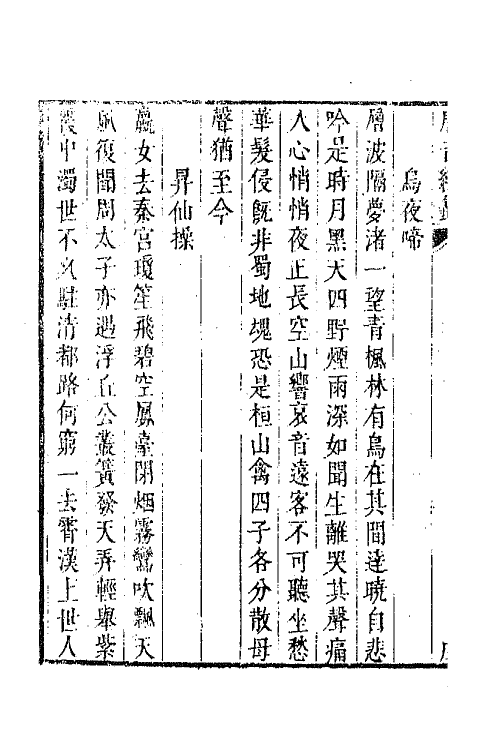 烏夜啼
層波隔夢渚一望青楓林有鳥在其間達曉自悲
吟是時月黑天四野煙雨深如聞生離哭其聲痛
人心悄悄夜正長空山響哀音遠客不可聽坐愁
華髮侵旣非蜀地魂恐是桓山禽四子各分散母
聲猶至今
昇仙操
嬴女去秦宮瓊笙飛碧空鳳臺閉烟霧鸞吹飄天
風復聞周太子亦遇浮丘公叢簧發天弄輕舉紫
霞中濁世不久駐清都路何窮一去霄漢上世人